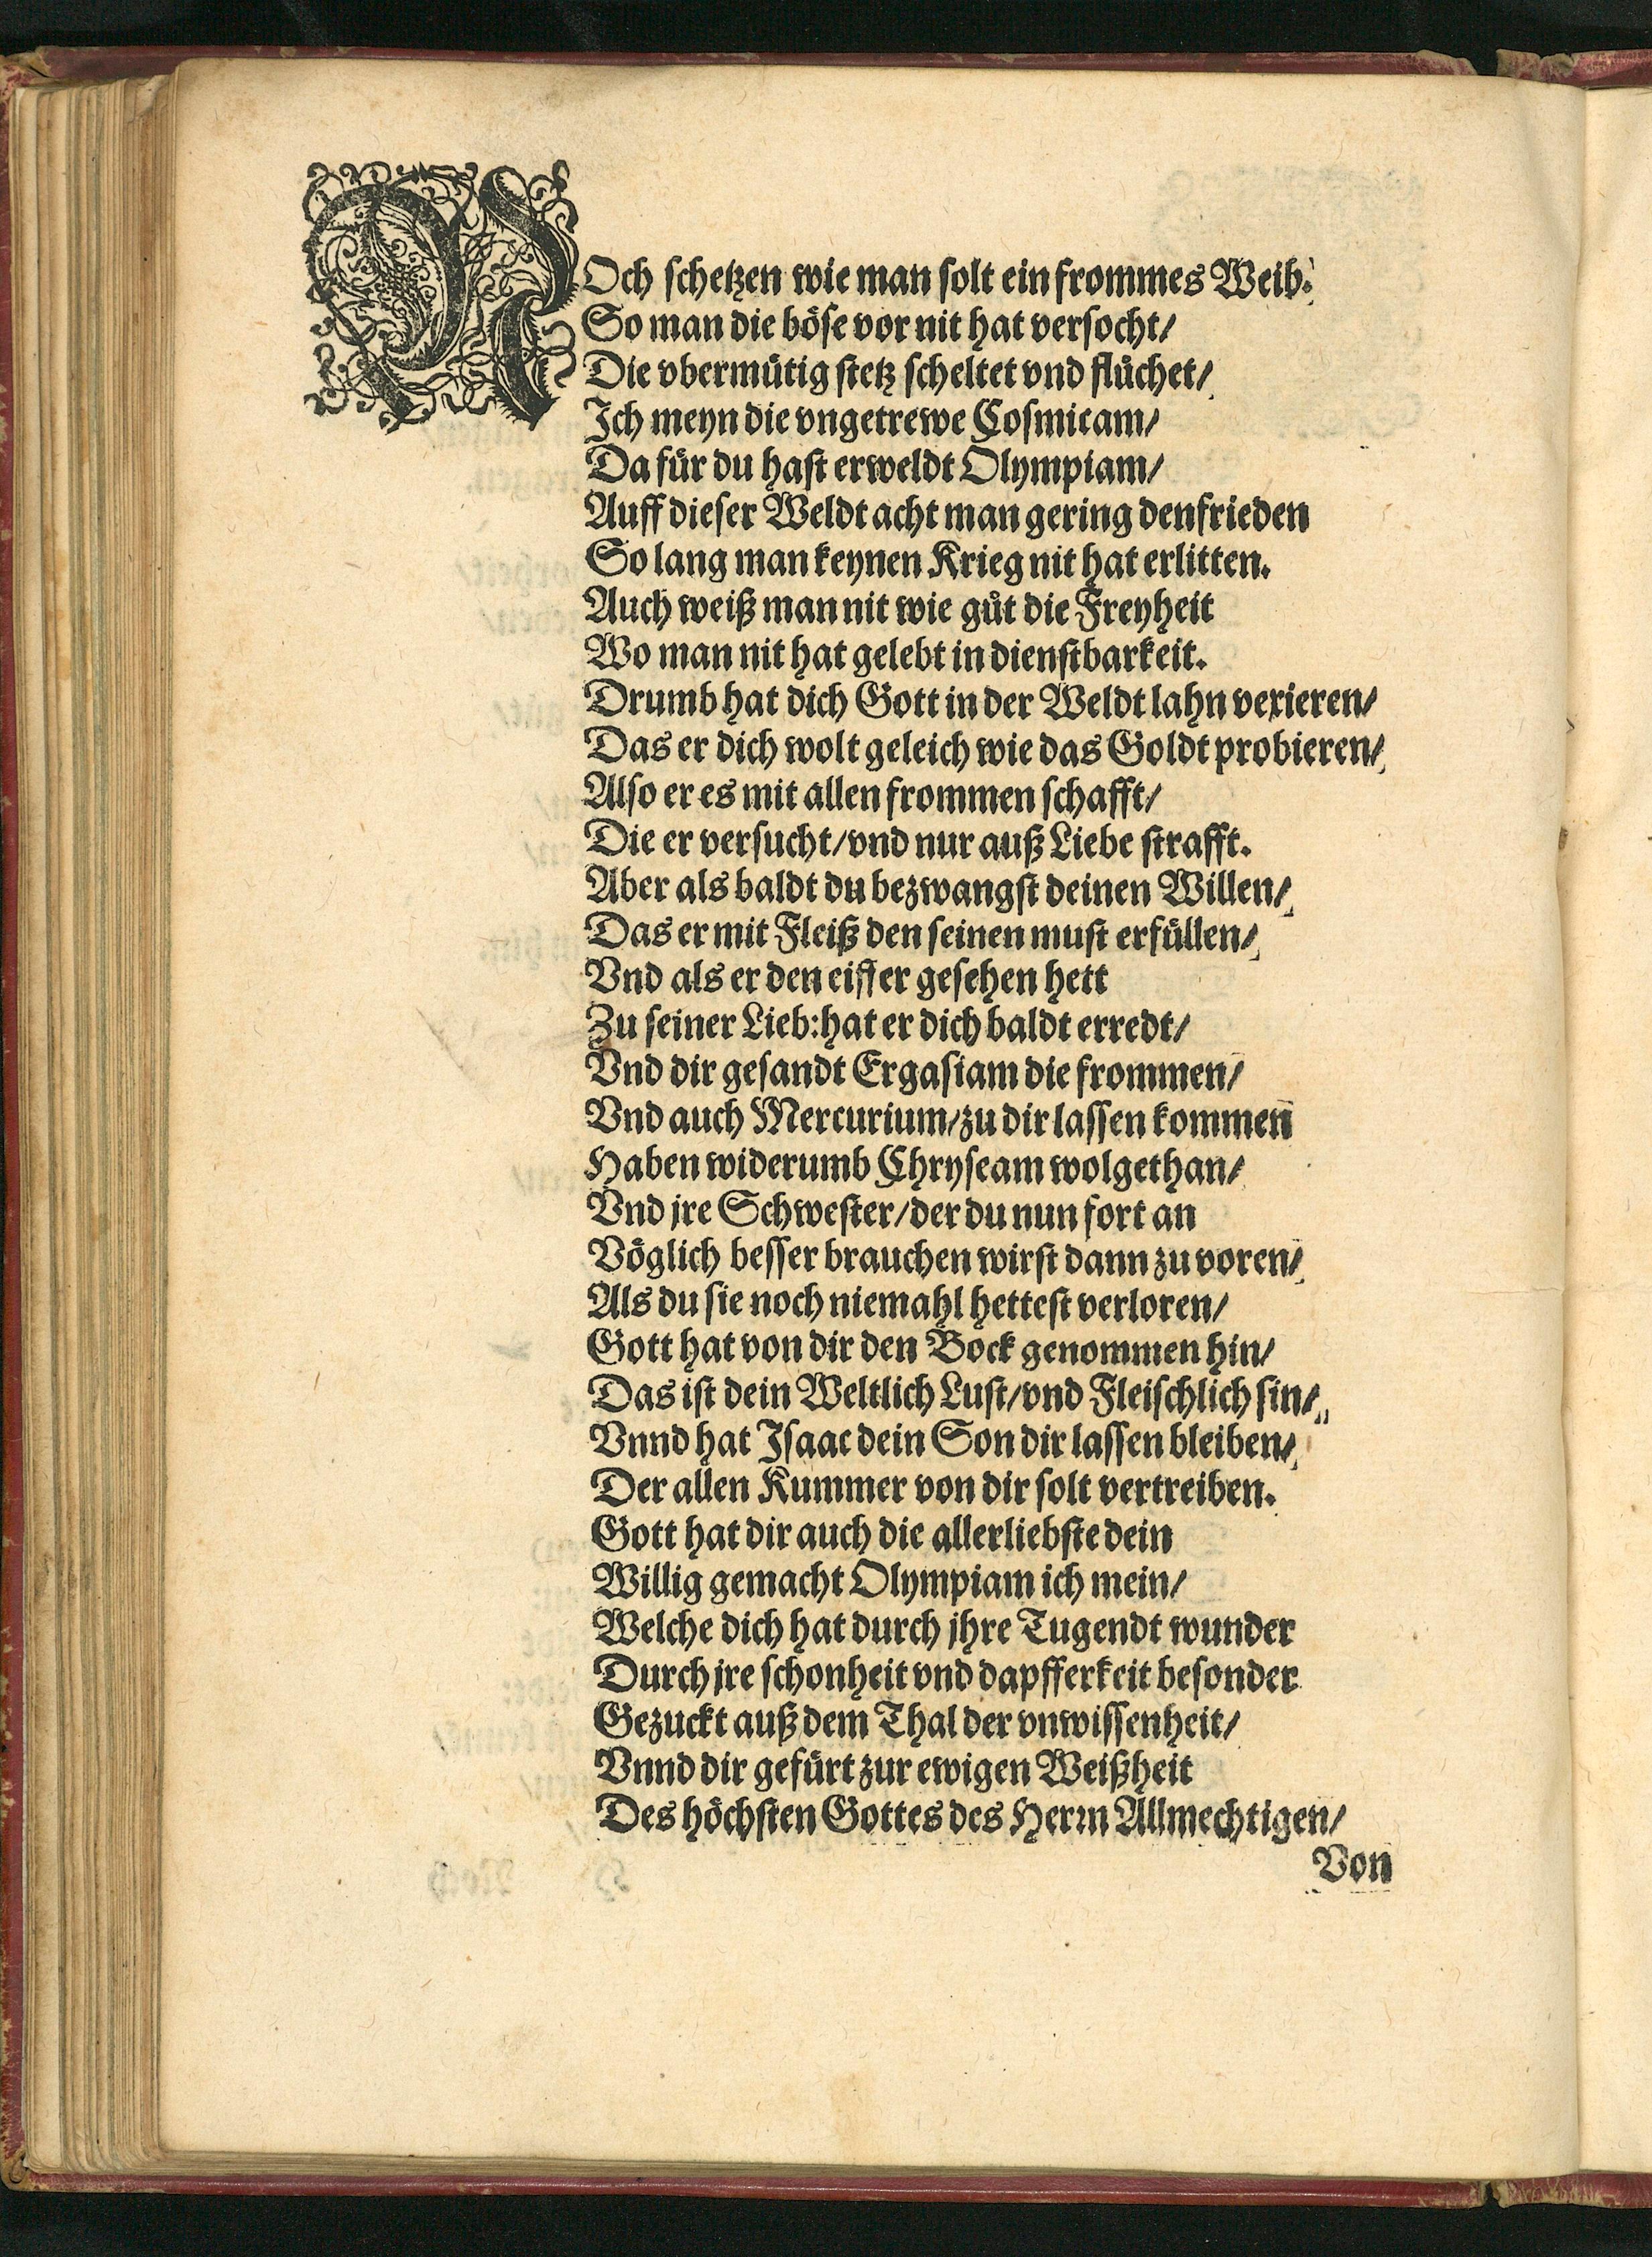 NOch schetzen wie man solt ein frommes Weib.
So man die böse vor nit hat versocht/
Die vbermütig stetz scheltet vnd flůchet/
Ich meyn die vngetrewe Cosmicam/
Da für du hast erweldt Olympiam/
Auff dieser Weldt acht man gering den frieden
So lang man keynen Krieg nit hat erlitten.
Auch weiß man nit wie gůt die Freyheit
Wo man nit hat gelebt in dienstbarkeit.
Drumb hat dich Gott in der Weldt lahn vexieren/
Das er dich wolt geleich wie das Goldt probieren/
Also er es mit allen frommen schafft/
Die er versucht/ vnd nur auß Liebe strafft.
Aber als baldt du bezwangst deinen Willen/
Das er mit Fleiß den seinen must erfüllen/
Vnd als er den eiffer gesehen hett
Zu seiner Lieb: hat er dich baldt erredt/
Vnd dir gesandt Ergasiam die frommen/
Vnd auch Mercurium/ zu dir lassen kommen
Haben widerumb Chryseam wolgethan/
Vnd jre Schwester/ der du nun fort an
Vöglich besser brauchen wirst dann zu voren/
Als du sie noch niemahl hettest verloren/
Gott hat von dir den Bock genommen hin/
Das ist dein Weltlich Lust/ vnd Fleischlich sin/
Vnnd hat Isaac dein Son dir lassen bleiben/
Der allen Kummer von dir solt vertreiben.
Gott hat dir auch die allerliebste dein
Willig gemacht Olympiam ich mein/
Welche dich hat durch jhre Tugendt wunder
Durch jre schonheit vnd dapfferkeit besonder
Gezuckt auß dem Thal der vnwissenheit/
Vnnd dir gefürt zur ewigen Weißheit
Des höchsten Gottes des Herrn Allmechtigen/
Von